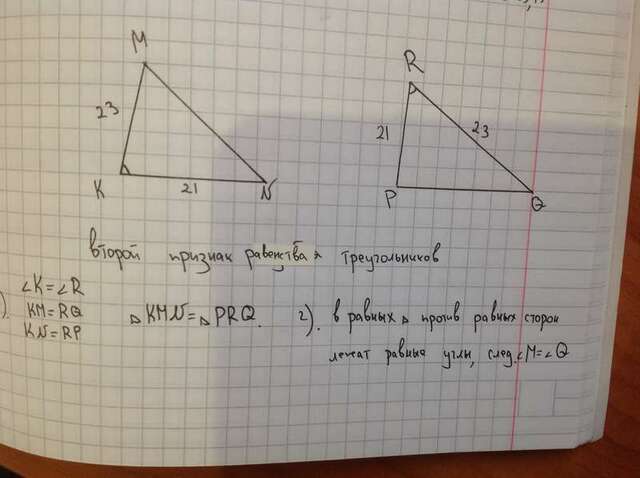 M
R
23
21
23
K
21
N
P
Q
второй признак равенства треугольников
∠K=∠R
KM=RQ
KN=RP
). △KMN=△PRQ. 2). в равных △ против равных сторон
лежат равные углы, след. ∠M=∠Q